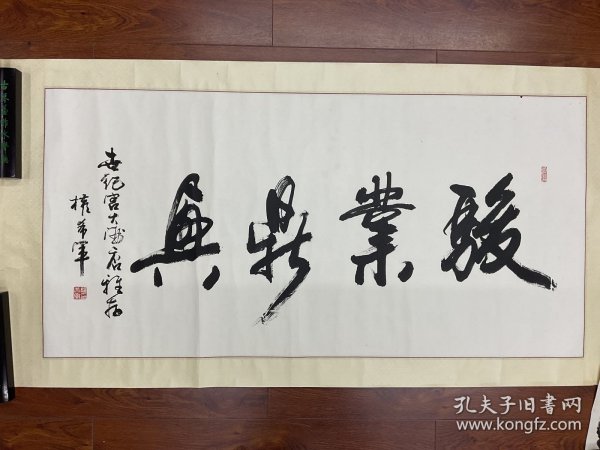 駿業鼎興
世纪宫大酒店雅存
權希軍
孔夫子旧書网
www.kongfz.com